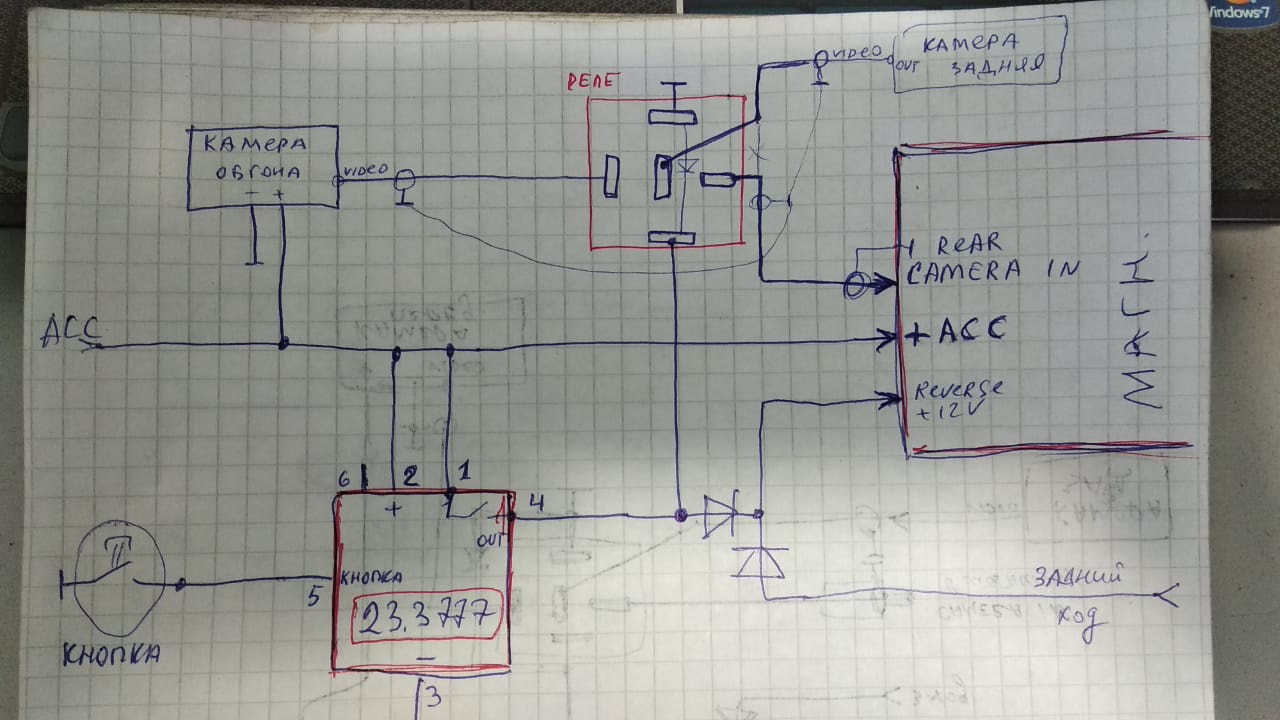 Windows 7
КАМЕРА
ЗАДНЯЯ
OUT
VIDEO
РЕЛЕ
КАМЕРА
ОБГОНА
- +
VIDEO
REAR
CAMERA IN
+ ACC
Reverse
+12V
МАГН.
ACC
6 2 1
+
4
OUT
КНОПКА
5
23.3777
-
3
II
КНОПКА
ЗАДНИЙ
ХОД